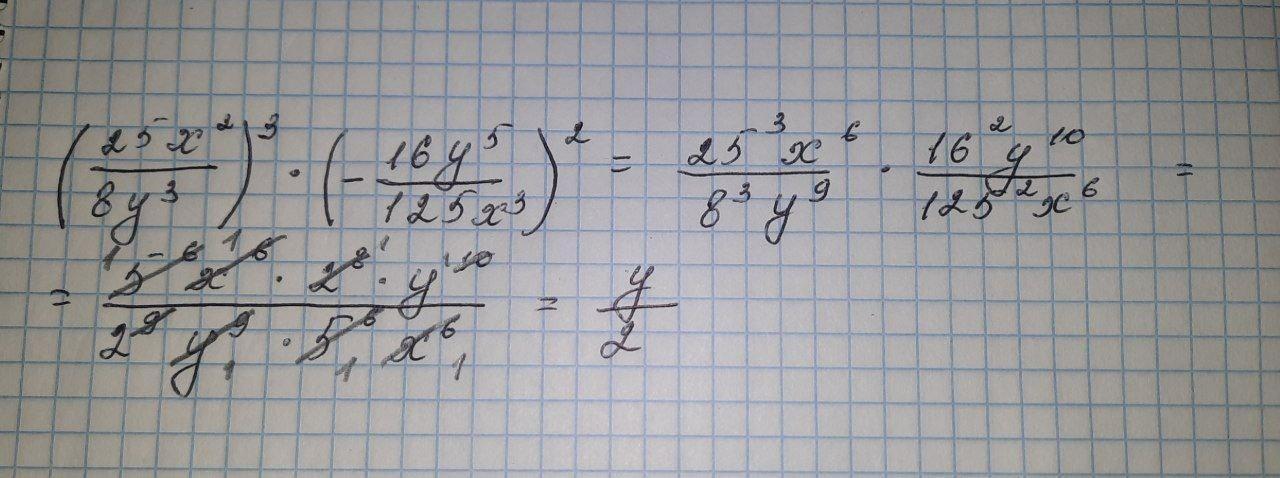 (25x²/8y³)³ · (-16y⁵/125x³)² = 25³x⁶/8³y⁹ · 16²y¹⁰/125²x⁶ =
= 5⁶x⁶ · 2⁸ · y¹⁰/2⁹y⁹ · 5⁶x⁶ = y/2